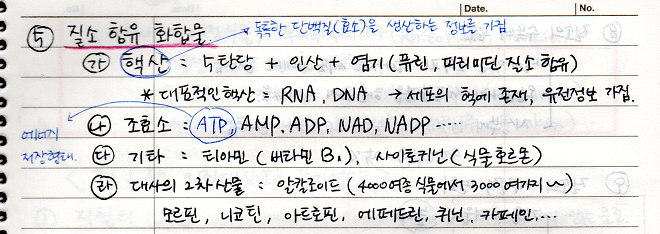 Date. No.
⑤ 질소 함유 화합물. * 독특한 단백질(효소)을 생산하는 정보를 가짐
㉮ 핵산 = 5탄당 + 인산 + 염기 (퓨린, 피리미딘 질소 함유)
* 대표적인 핵산 = RNA, DNA → 세포의 핵에 존재, 유전정보 가짐.
㉯ 조효소 : ATP, AMP, ADP, NAD, NADP ....
에너지
저장형태.
㉰ 기타 = 티아민 (비타민 B₁), 사이토키닌 (식물호르몬)
㉱ 대사의 2차 산물 = 알칼로이드 (4000여종 식물에서 3000여가지~)
모르핀, 니코틴, 아트로핀, 에페드린, 퀴닌, 카페인,...